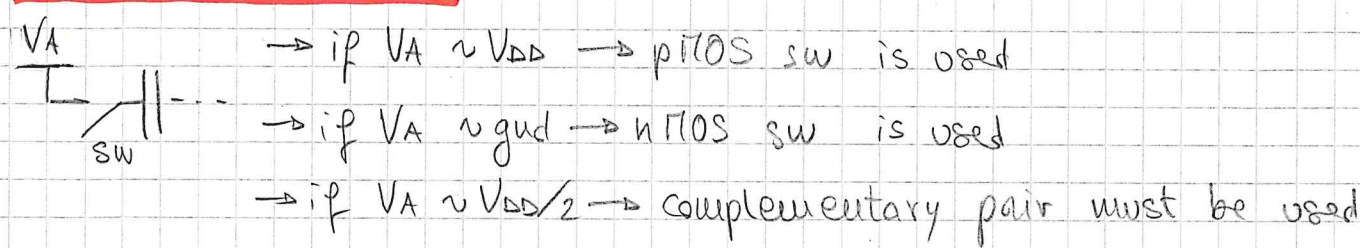 VA
→ if VA ~ VDD → pMOS sw is used
→ if VA ~ gnd → nMOS sw is used
SW
→ if VA ~ VDD/2 → complementary pair must be used